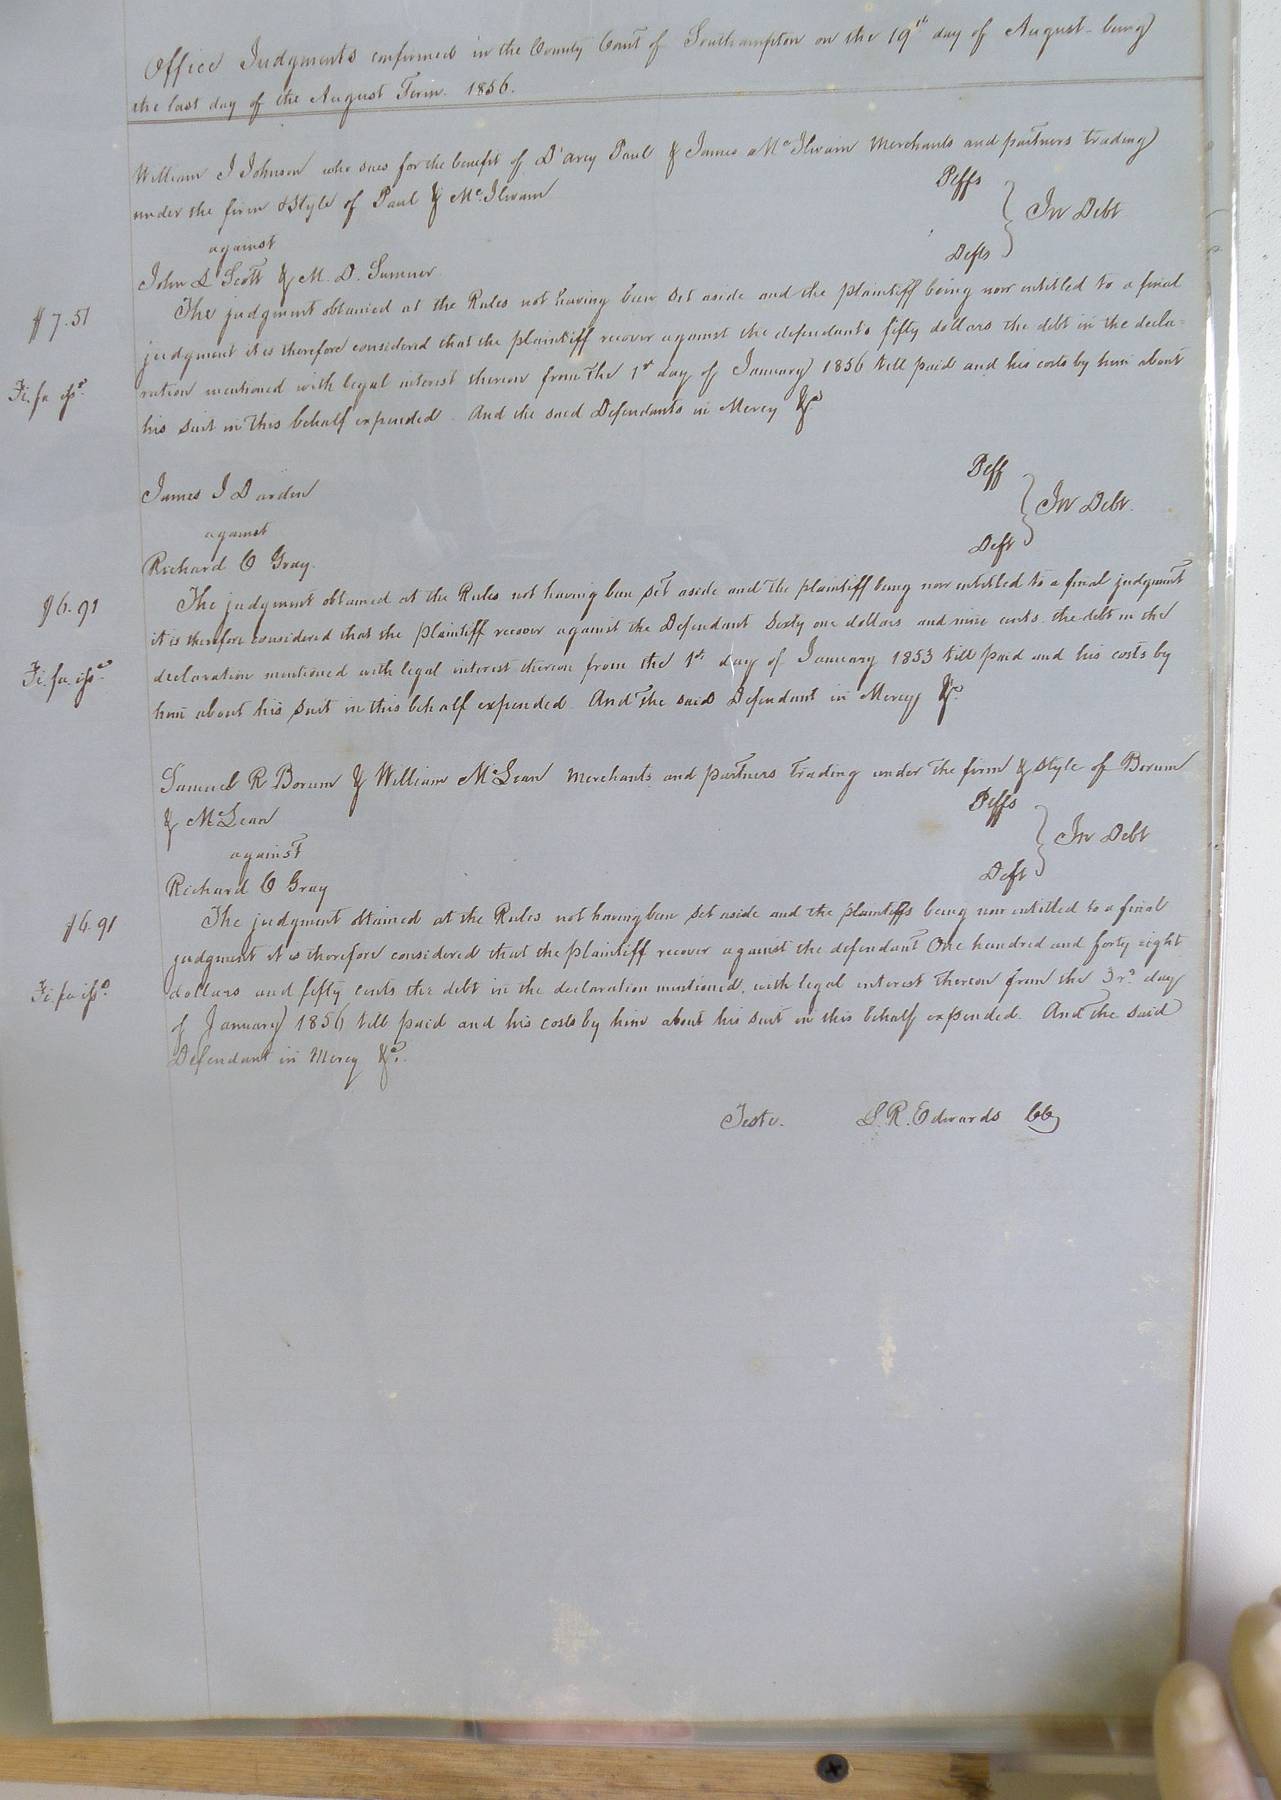 Office Judgments confirmed in the County Court of Southampton on the 19th day of August being
the last day of the August Term. 1856.
William J Johnson who sues for the benefit of D'arcy Paul & James McIlwain Merchants and partners trading
under the firm & Style of Paul & Mc.Ilwain
Plffs
against
In Debt
John L Scott & M. D. Sumner
Defts
$7.51
The judgment obtained at the Rules not having been set aside and the plaintiff being now entitled to a final
judgment it is therefore considered that the plaintiff recover against the defendants fifty dollars the debt in the decla-
Fi. fa issd.
ration mentioned with legal interest thereon from the 1st day of January 1856 till paid and his costs by him about
his suit in this behalf expended. And the said Defendants in Mercy &c.
James J Darden
Plff
against
In Debt.
Richard O Gray.
Deft
$6.91
The judgment obtained at the Rules not having ben set aside and the plaintiff being now entitled to a final judgment
it is therefore considered that the plaintiff recover against the Defendant Sixty one dollars and nine cents the debt in the
Fi. fa issd.
declaration mentioned with legal interest thereon from the 1st day of January 1853 till paid and his costs by
him about his suit in this behalf expended. And the said Defendant in Mercy &c.
Samuel R Borum & William McLean Merchants and partners trading under the firm & style of Borum
& McLean
Plffs
against
In Debt
Richard O Gray
Deft
$6.91
The judgment obtained at the Rules not having ben set aside and the plaintiffs being now entitled to a final
judgment it is therefore considered that the plaintiff recover against the defendant One hundred and forty eight
Fi. fa issd.
dollars and fifty cents the debt in the declaration mentioned, with legal interest thereon from the 3rd. day
of January 1856 till paid and his costs by him about his suit in this behalf expended. And the said
Defendant in Mercy &c.
Teste. L. R. Edwards CC